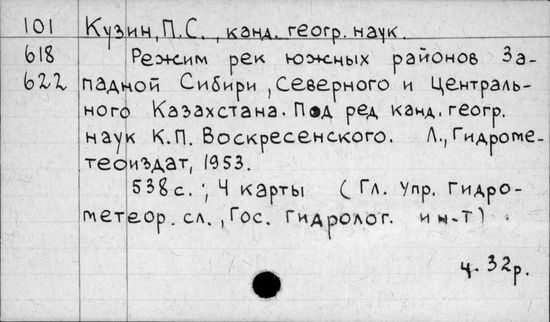 101 Кузин, П.С., канд. геогр. наук.
618 Режим рек южных районов За-
622 падной Сибири, Северного и Централь-
ного Казахстана. Под ред канд. геогр.
наук К.П. Воскресенского. Л., Гидроме-
теоиздат, 1953.
538 с.; 4 карты (Гл. Упр. Гидро-
метеор. сл., Гос. Гидролог. ин-т).
ц. 32р.